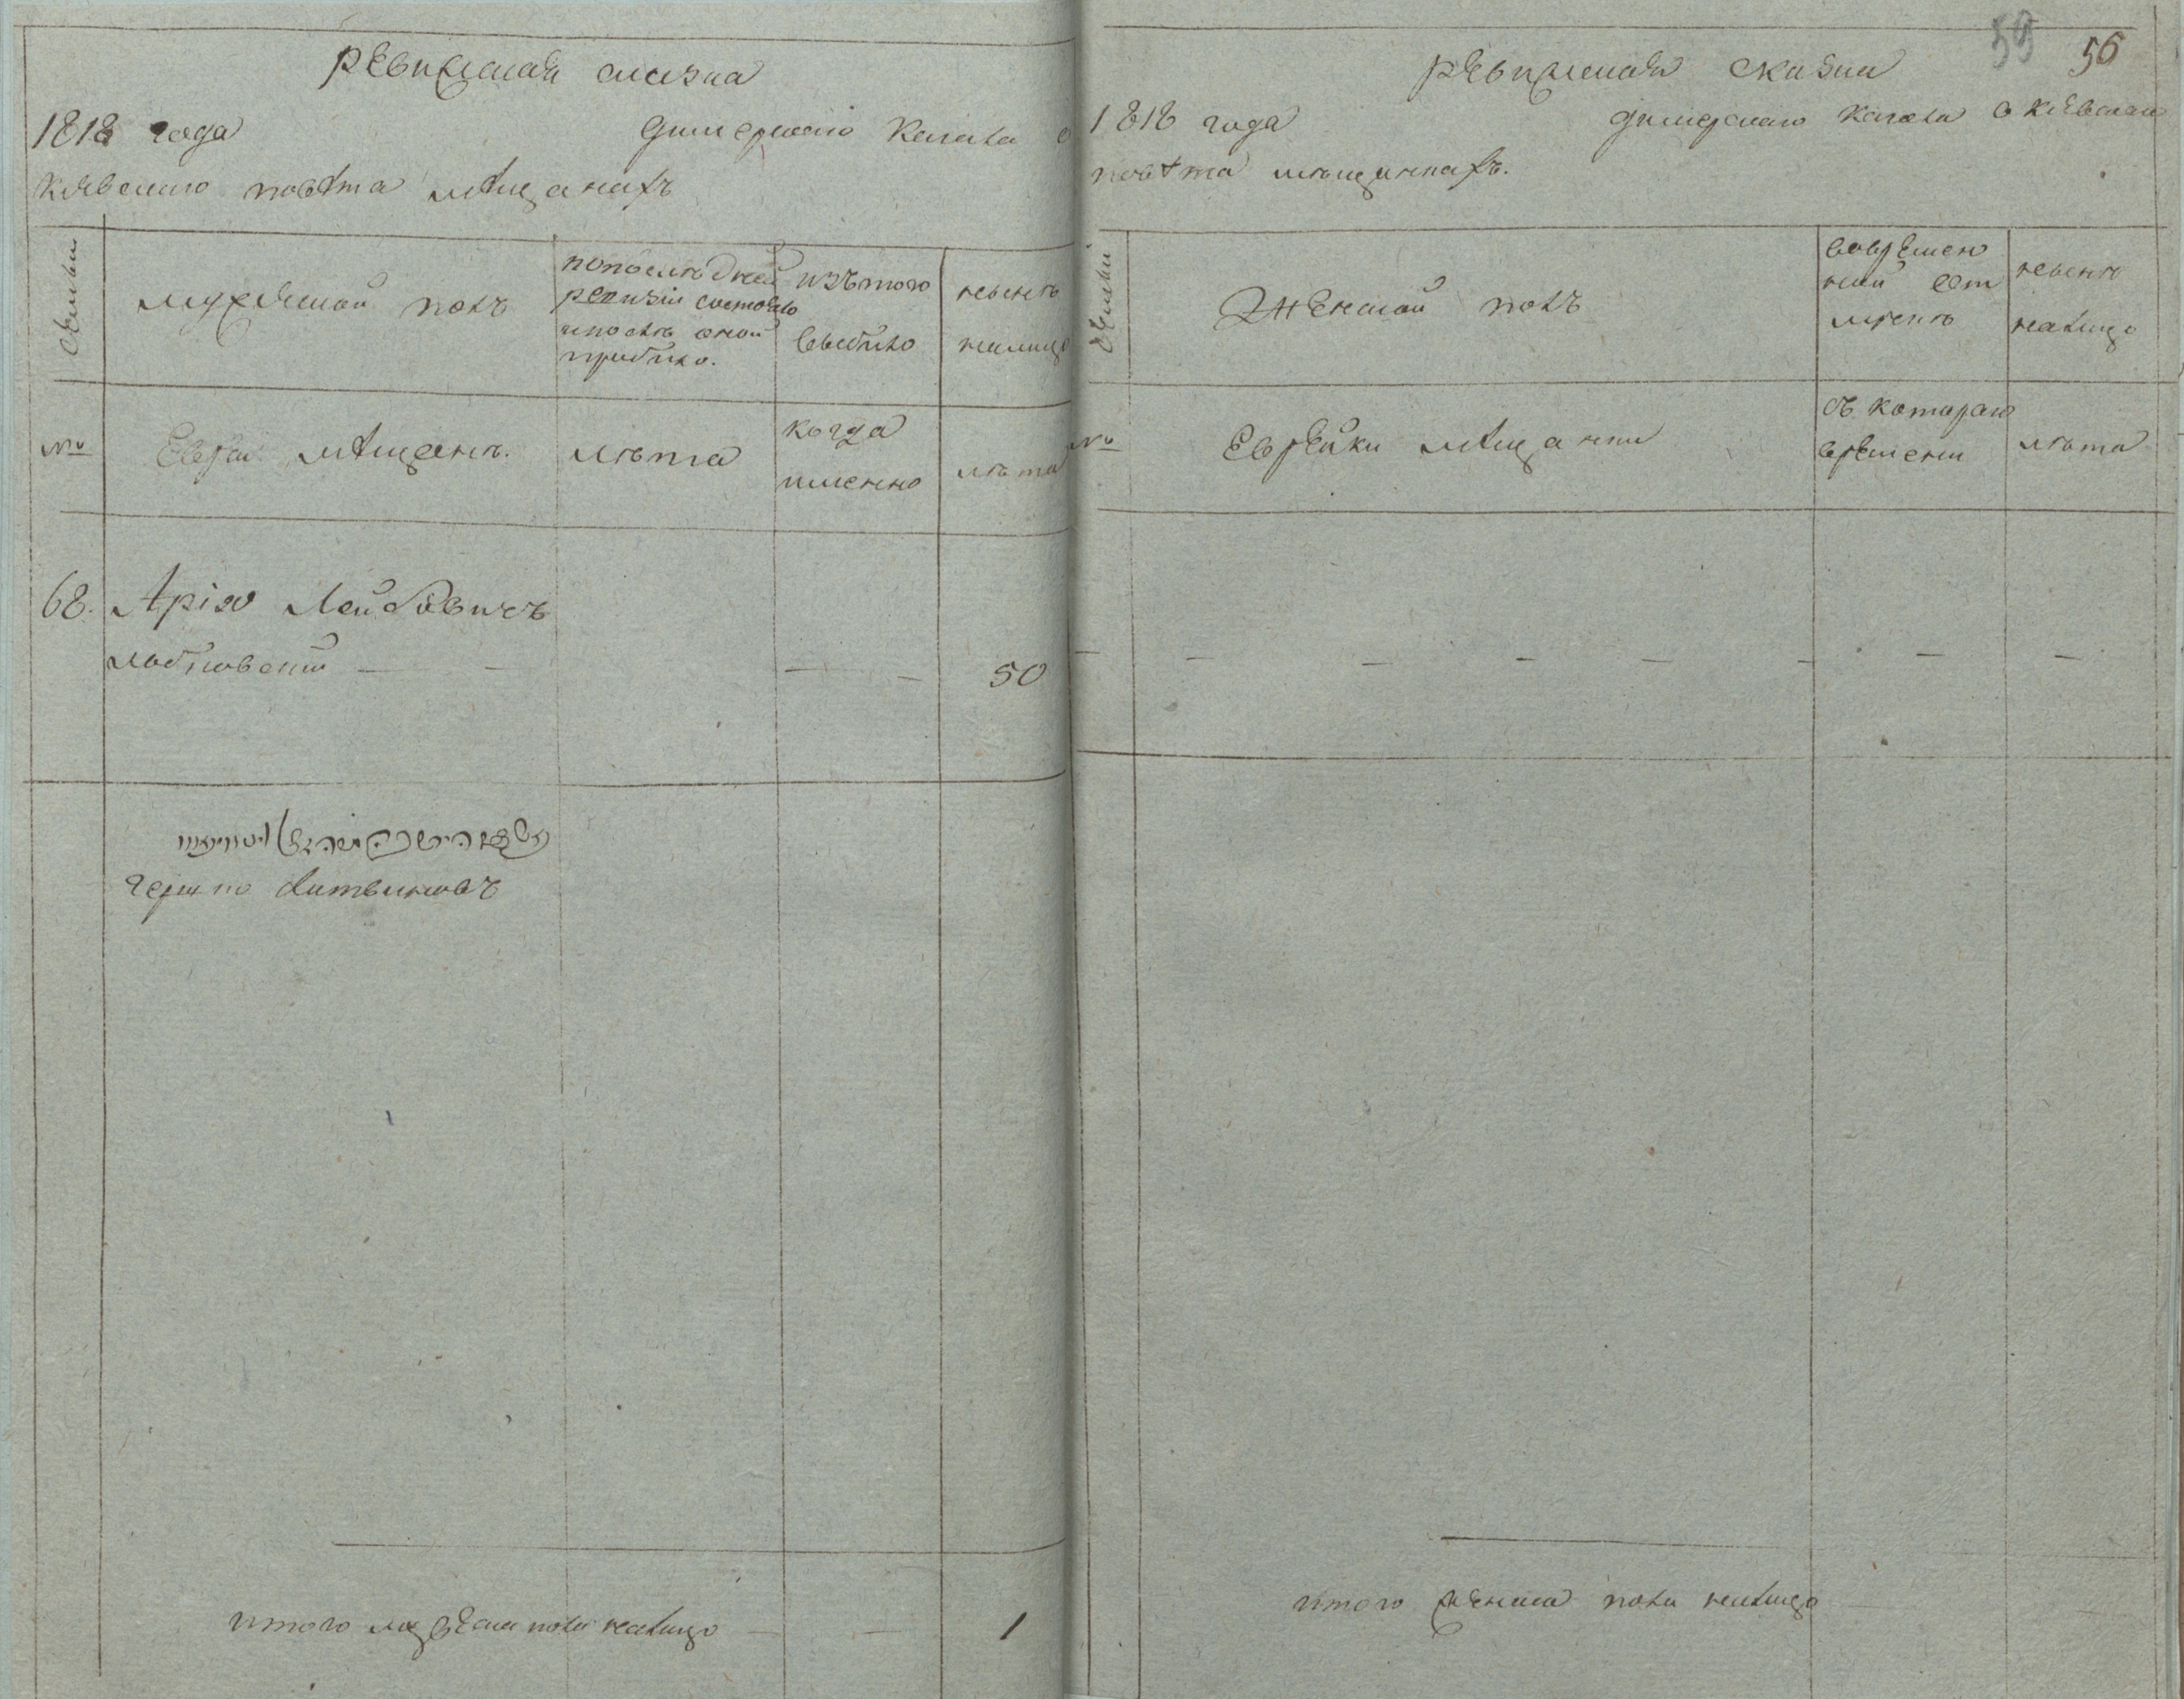 ревизская сказка
1818 года димерского кагала о
киевского повѣта мѣщанахъ
Семьи
мужеской полъ
попослѣдней
ревизіи состояло
и послѣ оной
прибыло.
изъ того
выбыло
нынѣ
налицо
№
Евреи мѣщане.
лѣта
когда
именно
лѣта
68. Аріо Лейбовичъ
50
Итого мужеска пола налицо — — 1
59 56
ревизская сказка
1818 года димерского кагала о киевскаго
повѣта мѣщанкахъ.
Семьи
Женской полъ
вовремен
ной от
лучкѣ
нынѣ
налицо
№
Еврейки мѣщанки
съ котораго
времени
лѣта
итого женска пола налицо